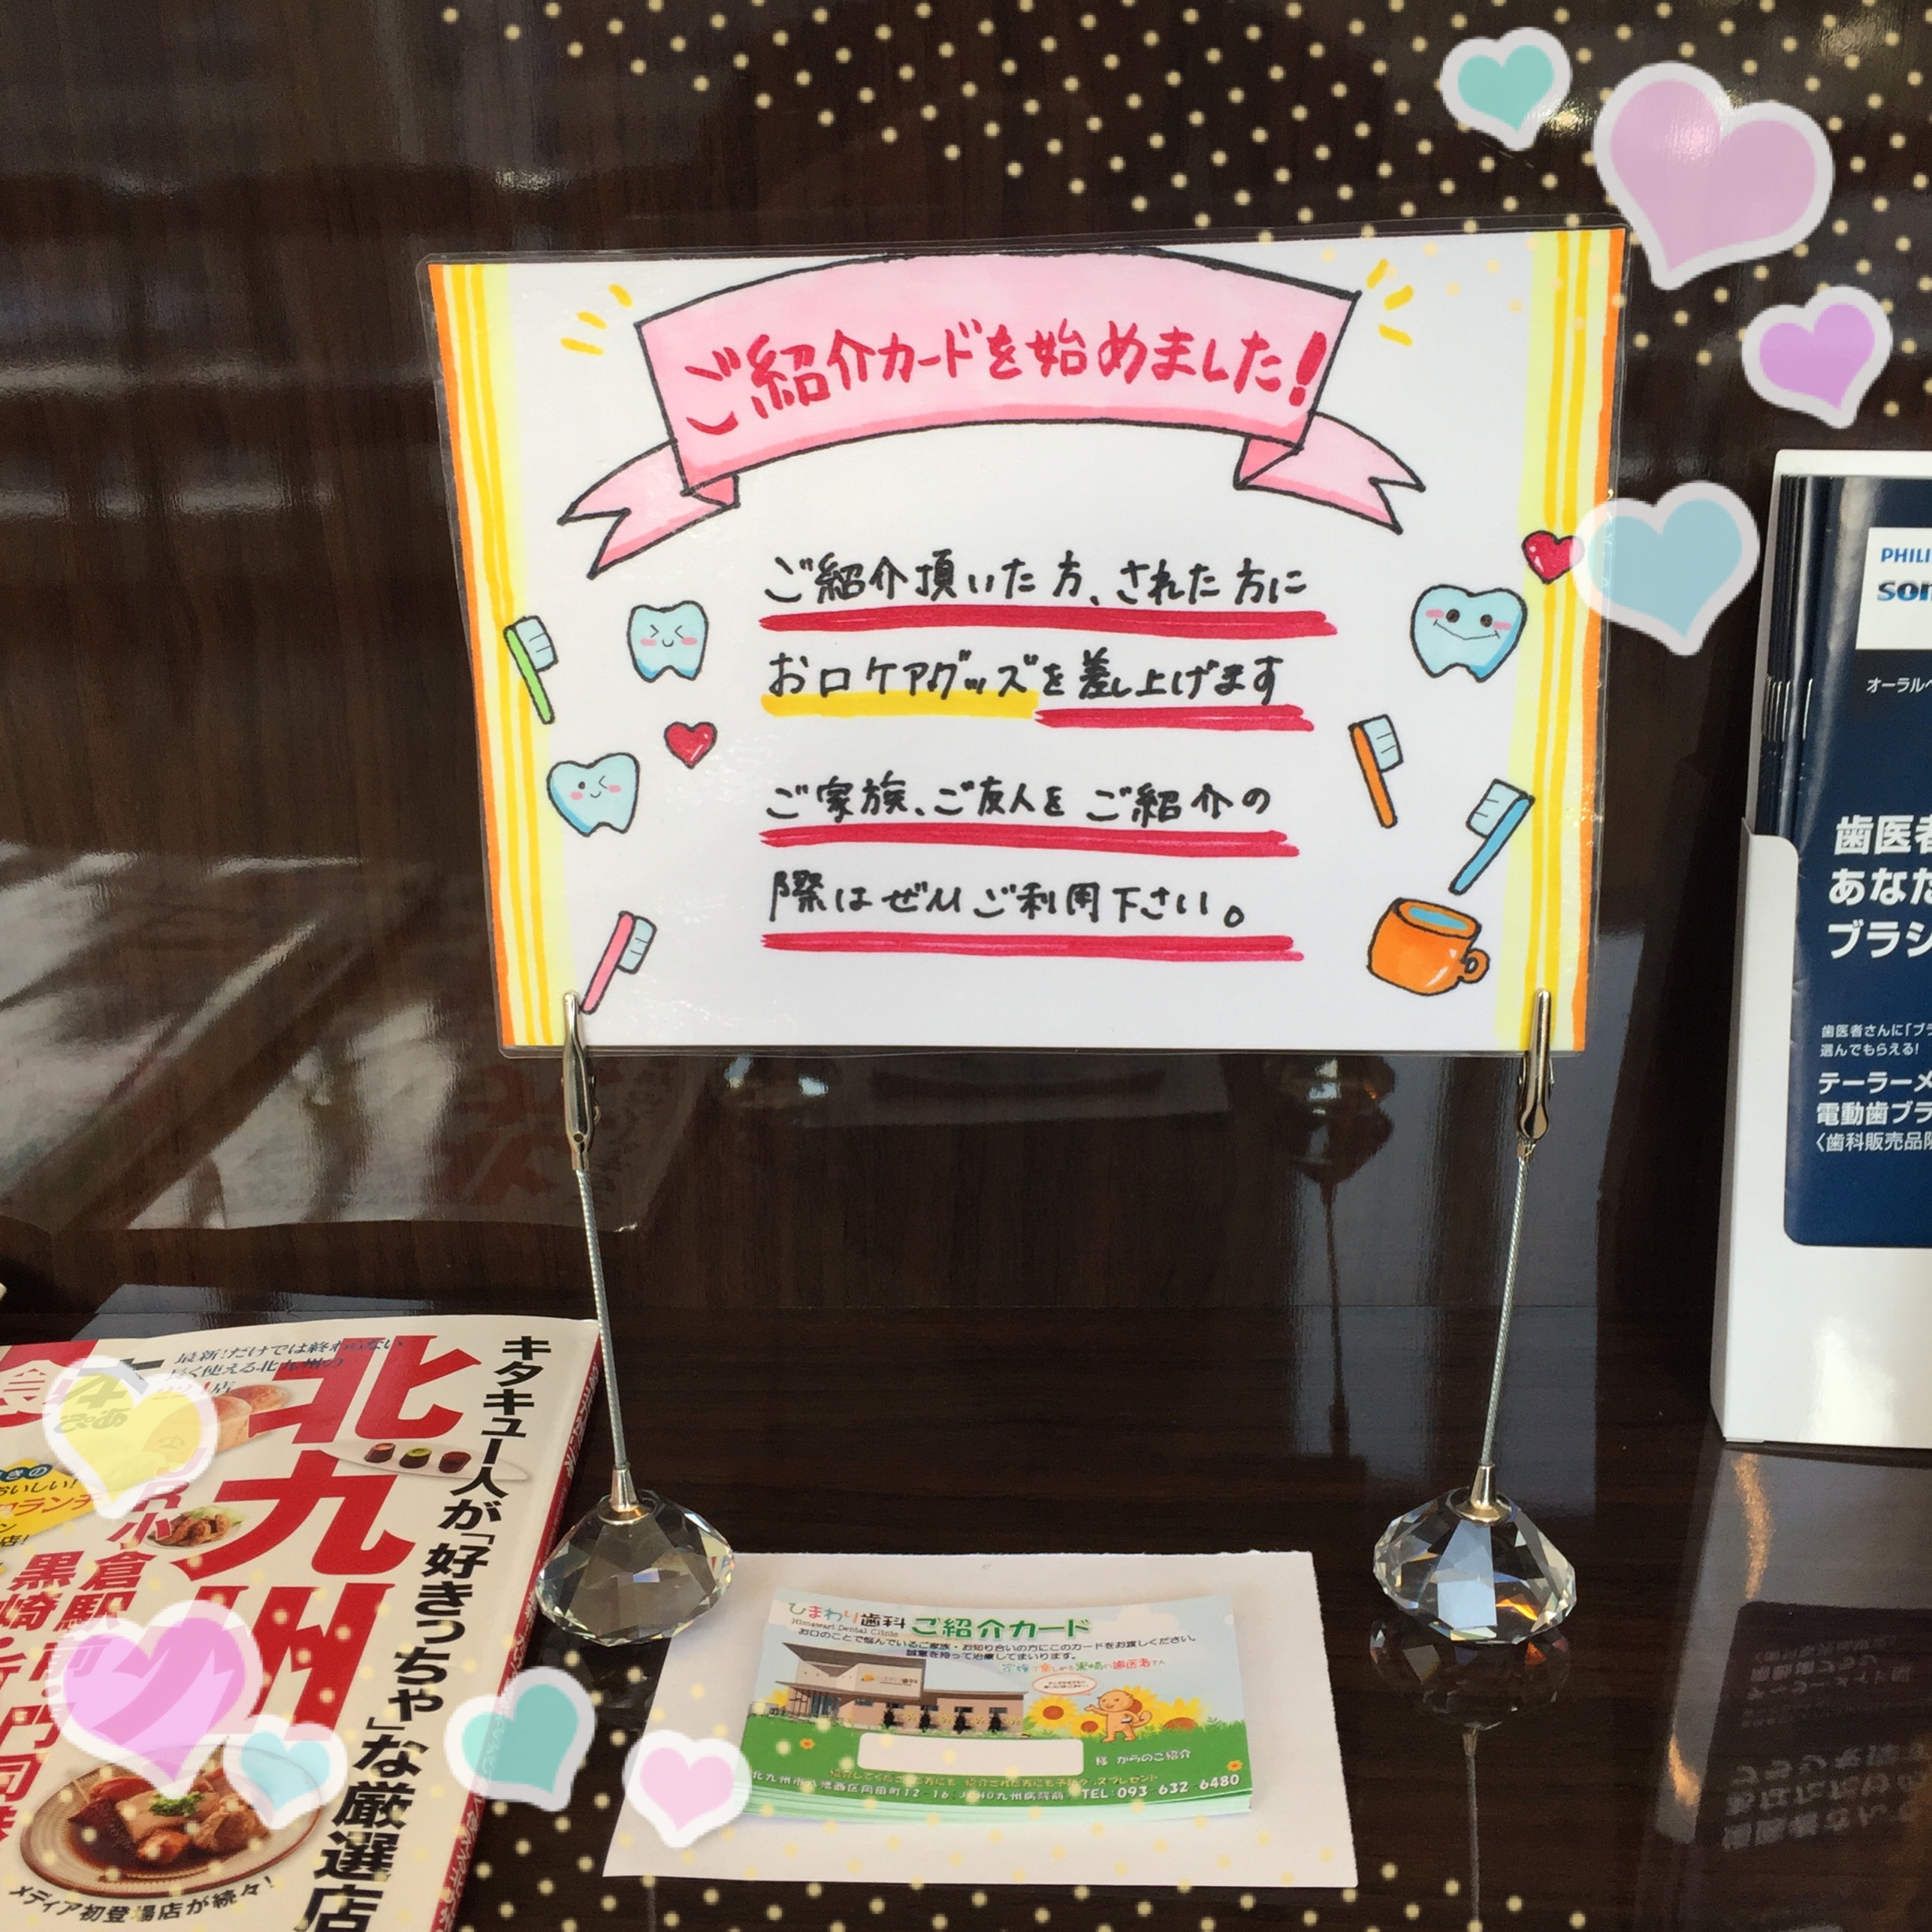 ご紹介カードを始めました!
ご紹介頂いた方、された方に
お口ケアグッズを差し上げます
ご家族、ご友人をご紹介の
際はぜひご利用下さい。
PHILI
son
オーラルヘ
歯医者
あなた
ブラシ
歯医者さんに「ブラ
選んでもらえる!
テーラーメ
電動歯ブラ
〈歯科販売品限
キタキュー人が「好きっちゃ」な厳選店
最新!だけでは終わらない
長く使える北九州の
北九州
ぴあ
おいしい!
ランチ
小倉駅前
黒崎
門司港
メディア初登場店が続々!
ひまわり歯科 ご紹介カード
Himawari Dental Clinic
お口のことで悩んでいるご家族・お知り合いの方にこのカードをお渡しください。
誠意を持って治療してまいります。
家族で楽しめる黒崎の歯医者さん
様 からのご紹介
北九州市八幡西区岸の浦 TEL:093-632-6480